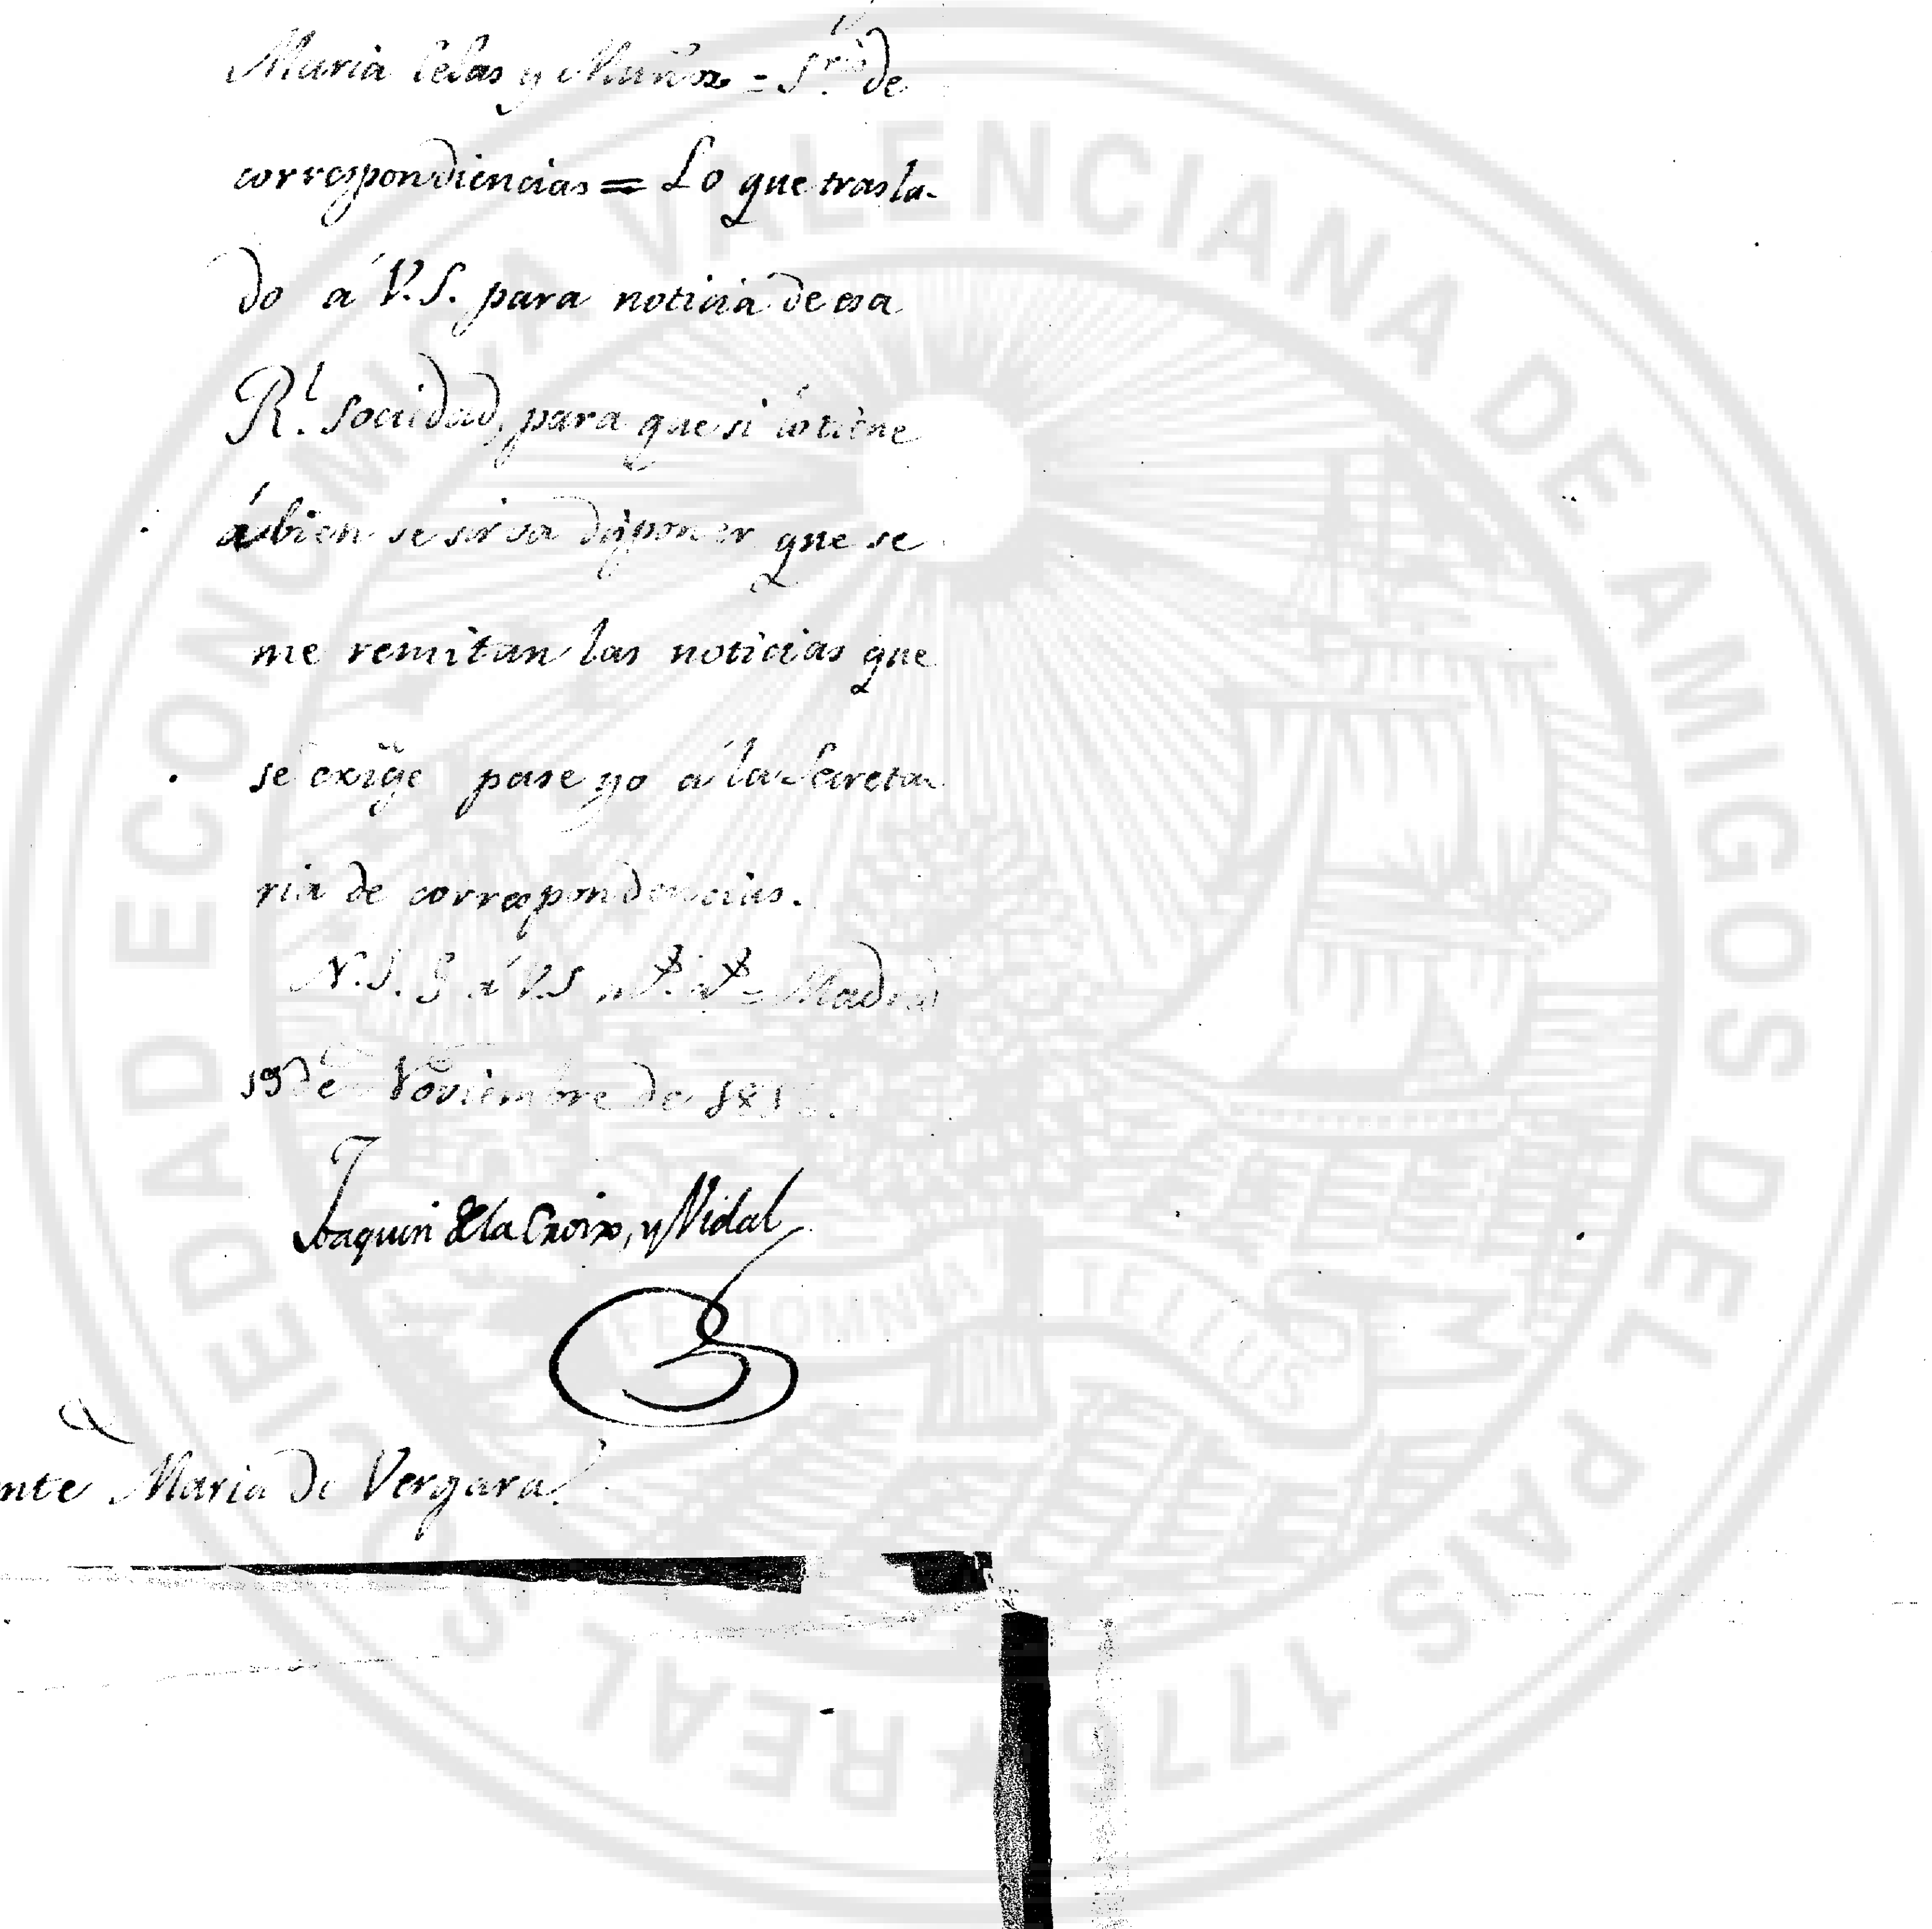 Maria Celas y Muñoz = S.rio de
correspondiencias = Lo que trasla-
do á V.S. para noticia de esa
R.l Sociedad, para que si lo tiene
á bien se sirva disponer que se
me remitan las noticias que
se exige pase yo á la Secreta-
ria de correspondencias.
N. S. G á V.S m.s a.s = Madrid
19 de Noviembre de
Joaquin de la Croix, y Vidal
nte Maria de Vergara.
REAL SOCIEDAD ECONOMICA VALENCIANA DE AMIGOS DEL PAIS 1776
FERT OMNIA TELLUS